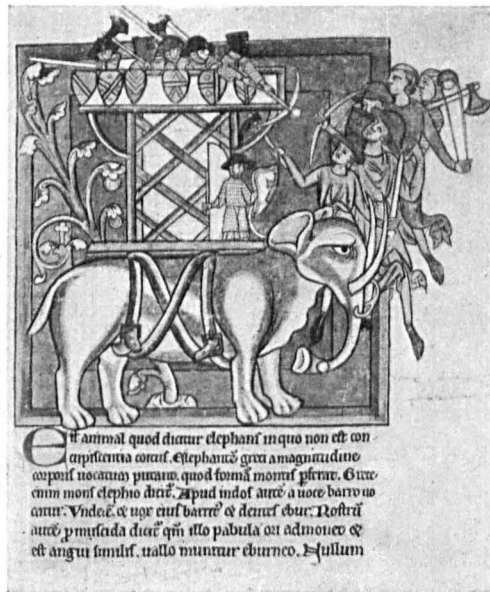 Est animal quod dicitur elephans in quo non est con
cupiscentia coitus. Elephantē greci a magnitudine
corporis uocatum putant. quod formā montis p̄ferat. Grece
enim mons elephio dicit̄. Apud indos autē a uoce barro uo
catur. Vnde ⁊ uox eius barrit̄ ⁊ dentes ebur. Rostrū
autē p̱muscida dicit̄ qm̄ illo pabula ori admouet ⁊
est angui similis. uallo munitur eburneo. Nullum